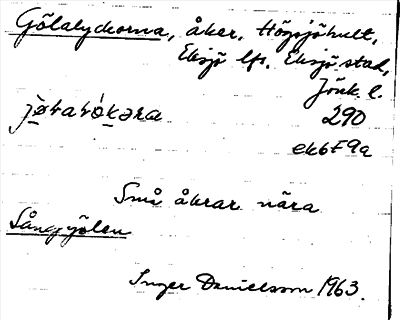 Gölalyckorna, åker, Högsjöhult,
Eksjö lfs. Eksjö stad,
Jönk. l.
290
ekbf9a
Små åkrar nära
Sångjölen
Inger Danielsson 1963.